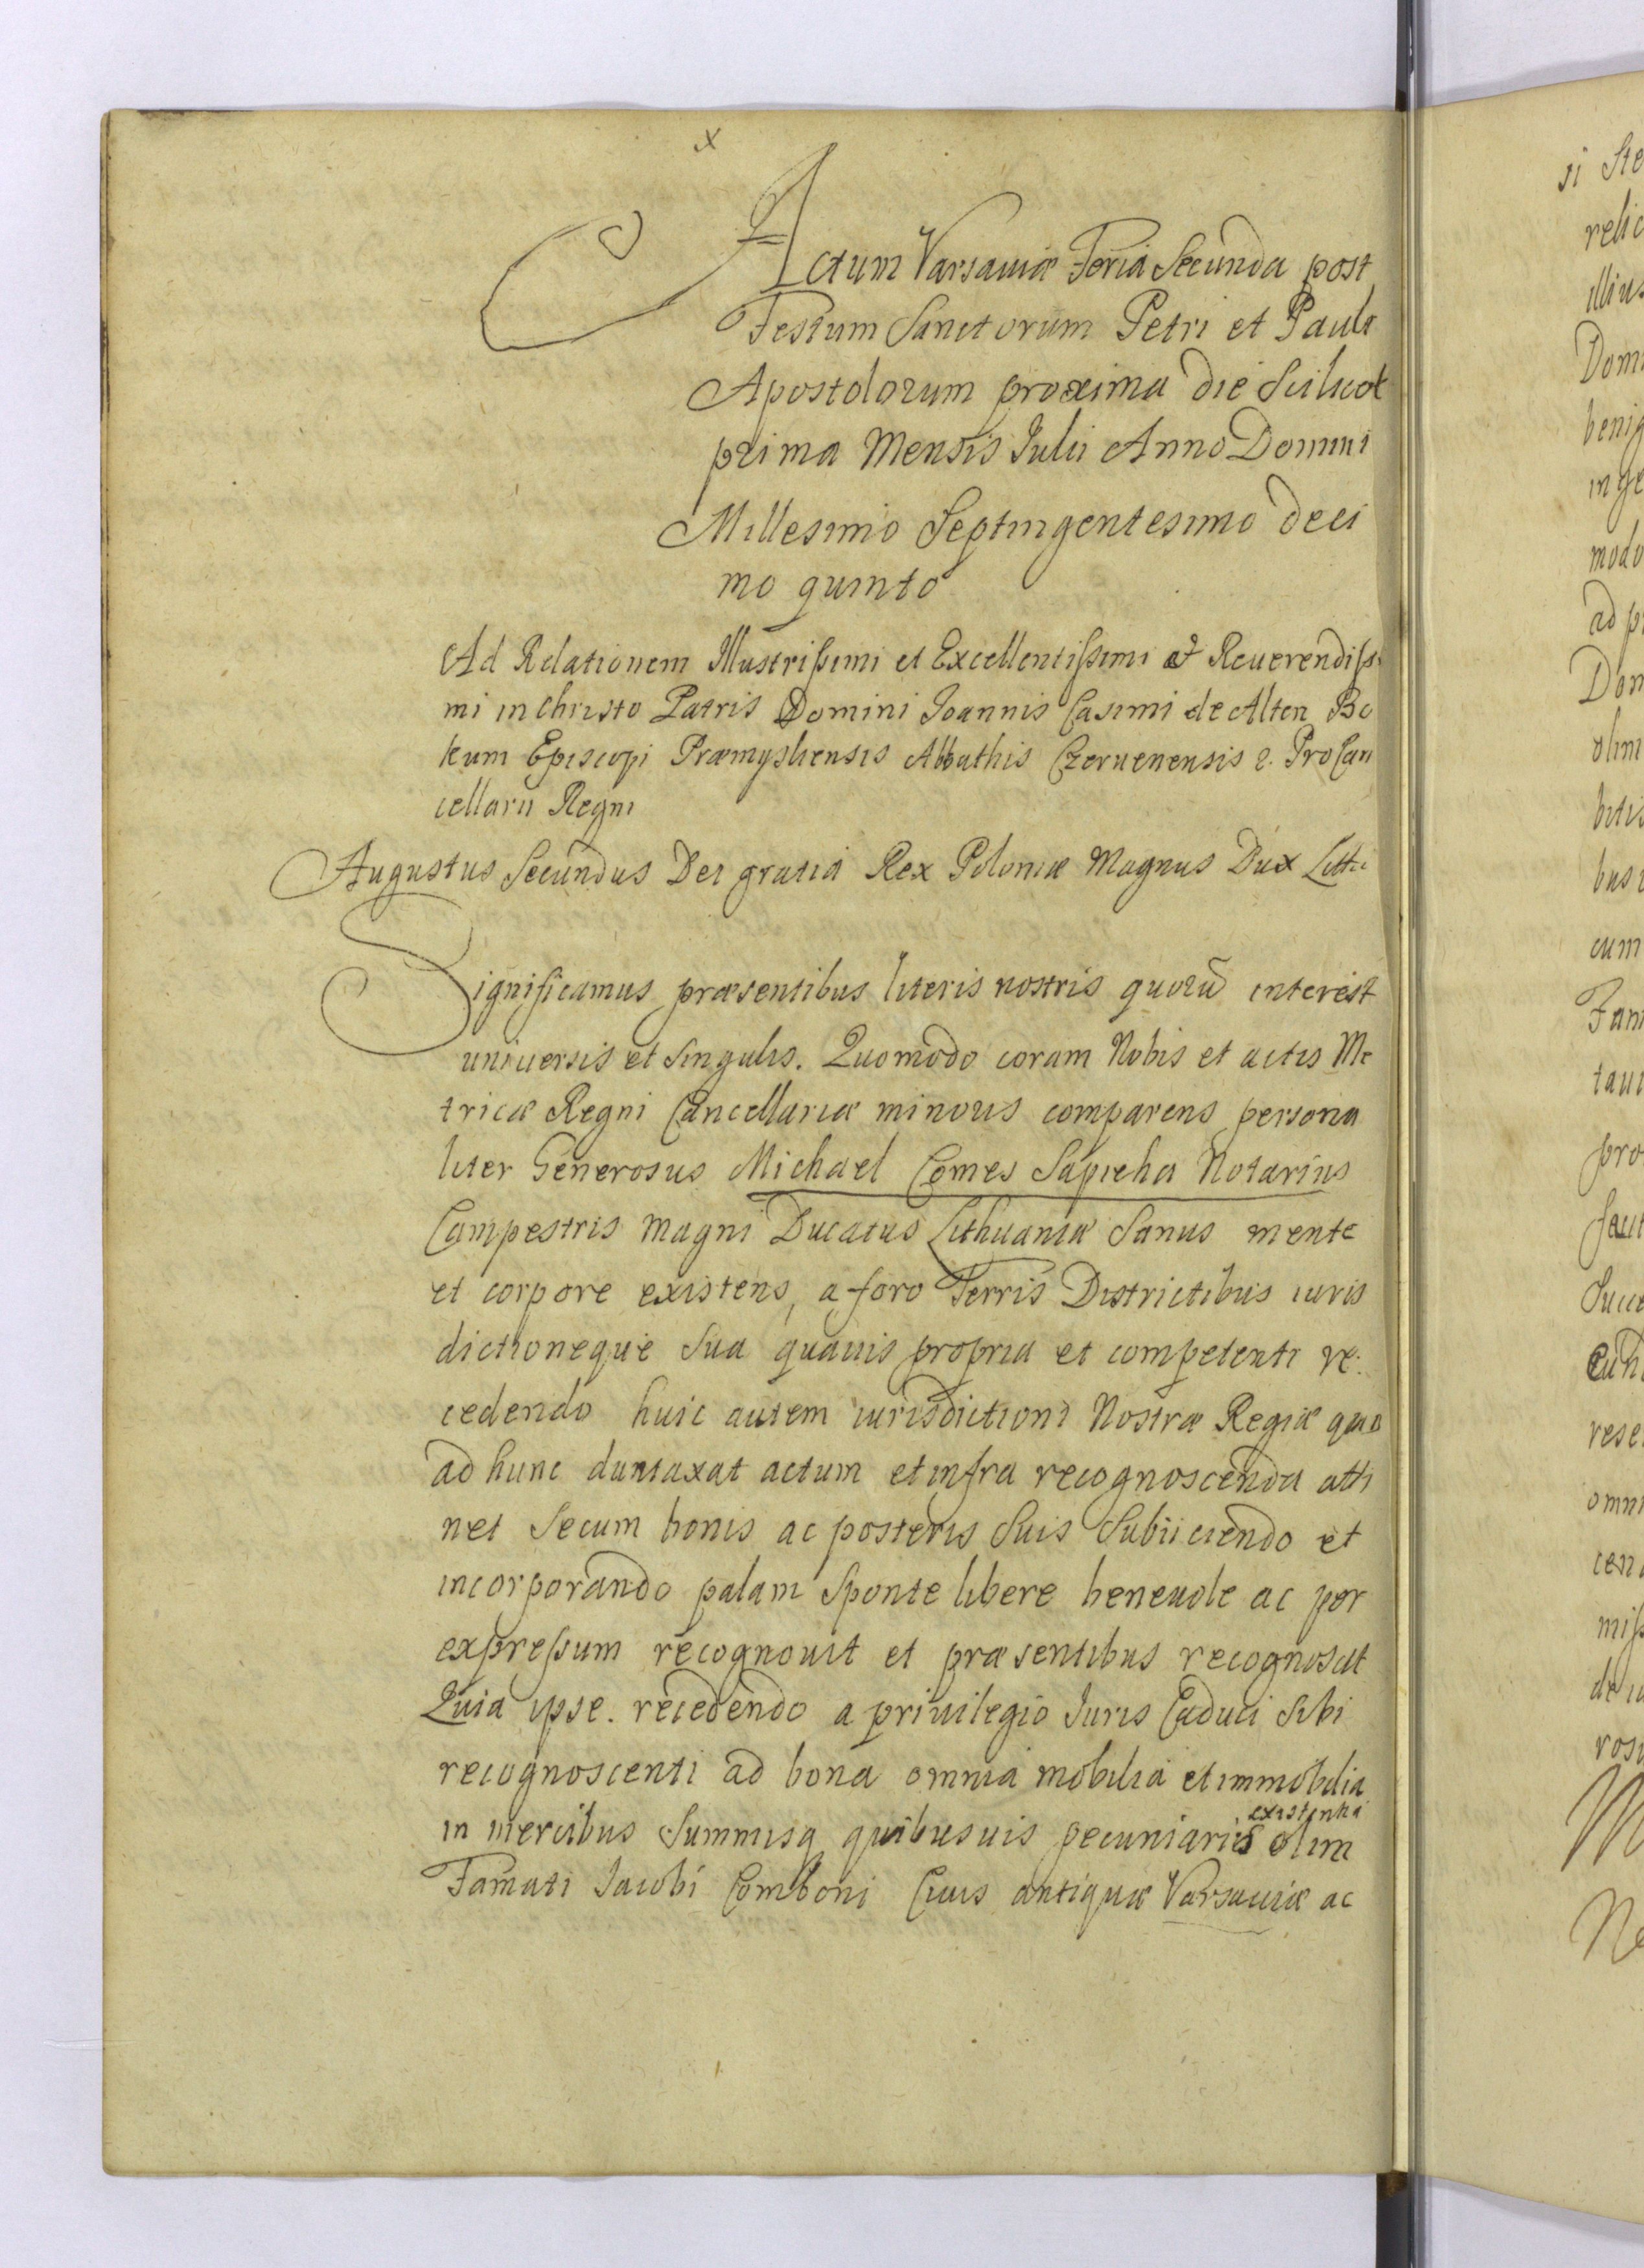 x
Actum Varsauiæ Feria Secunda post
Festum Sanctorum Petri et Pauli
Apostolorum proxima die Scilicet
prima Mensis Iulii Anno Domini
Millesimo Septingentesimo deci
mo quinto
Ad Relationem Illustrißimi et Excellentißimi et Reuerendißi
mi in Christo Patris Domini Ioannis Casimi de Alten Bo
kum Episcopi Præmysliensis Abbathis Czeruenensis &. ProCan
cellarii Regni
Augustus Secundus Dei gratia Rex Poloniæ Magnus Dux Litt
Significamus præsentibus literis nostris quorũ interest
uniuersis et singulis. Quomodo coram Nobis et actis Me
tricæ Regni Cancellariæ minoris comparens persona
liter Generosus Michael Comes Sapieha Notarius
Campestris Magni Ducatus Lithuaniæ Sanus mente
et corpore existens, a foro Terris Districtibus iuris
dictioneque Sua quauis propria et competenti re:
cedendo huic autem iurisdictioni Nostræ Regiæ quo
ad hunc duntaxat actum et infra recognoscenda atti
net Secum bonis ac posteris Suis Subiiciendo et
incorporando palam Sponte libere beneuole ac per
expreßum recognouit et præsentibus recognoscit
Quia ipse. recedendo a priuilegio Iuris Caduci Sibi
recognoscenti ad bona omnia mobilia et immobilia
existentia
in mercibus Summisq quibusuis pecuniariis olim
Famati Iacobi Comboni Ciuis antiquæ Varsauiæ ac
si Ste
relic
illius
Domi
benig
in ge
modo
ad p
Dom
olim
bitis
bus
cum
Fam
taui
pro
fecit
Succe
rese
omni
cen
miß
de iu
ros
M
Ne